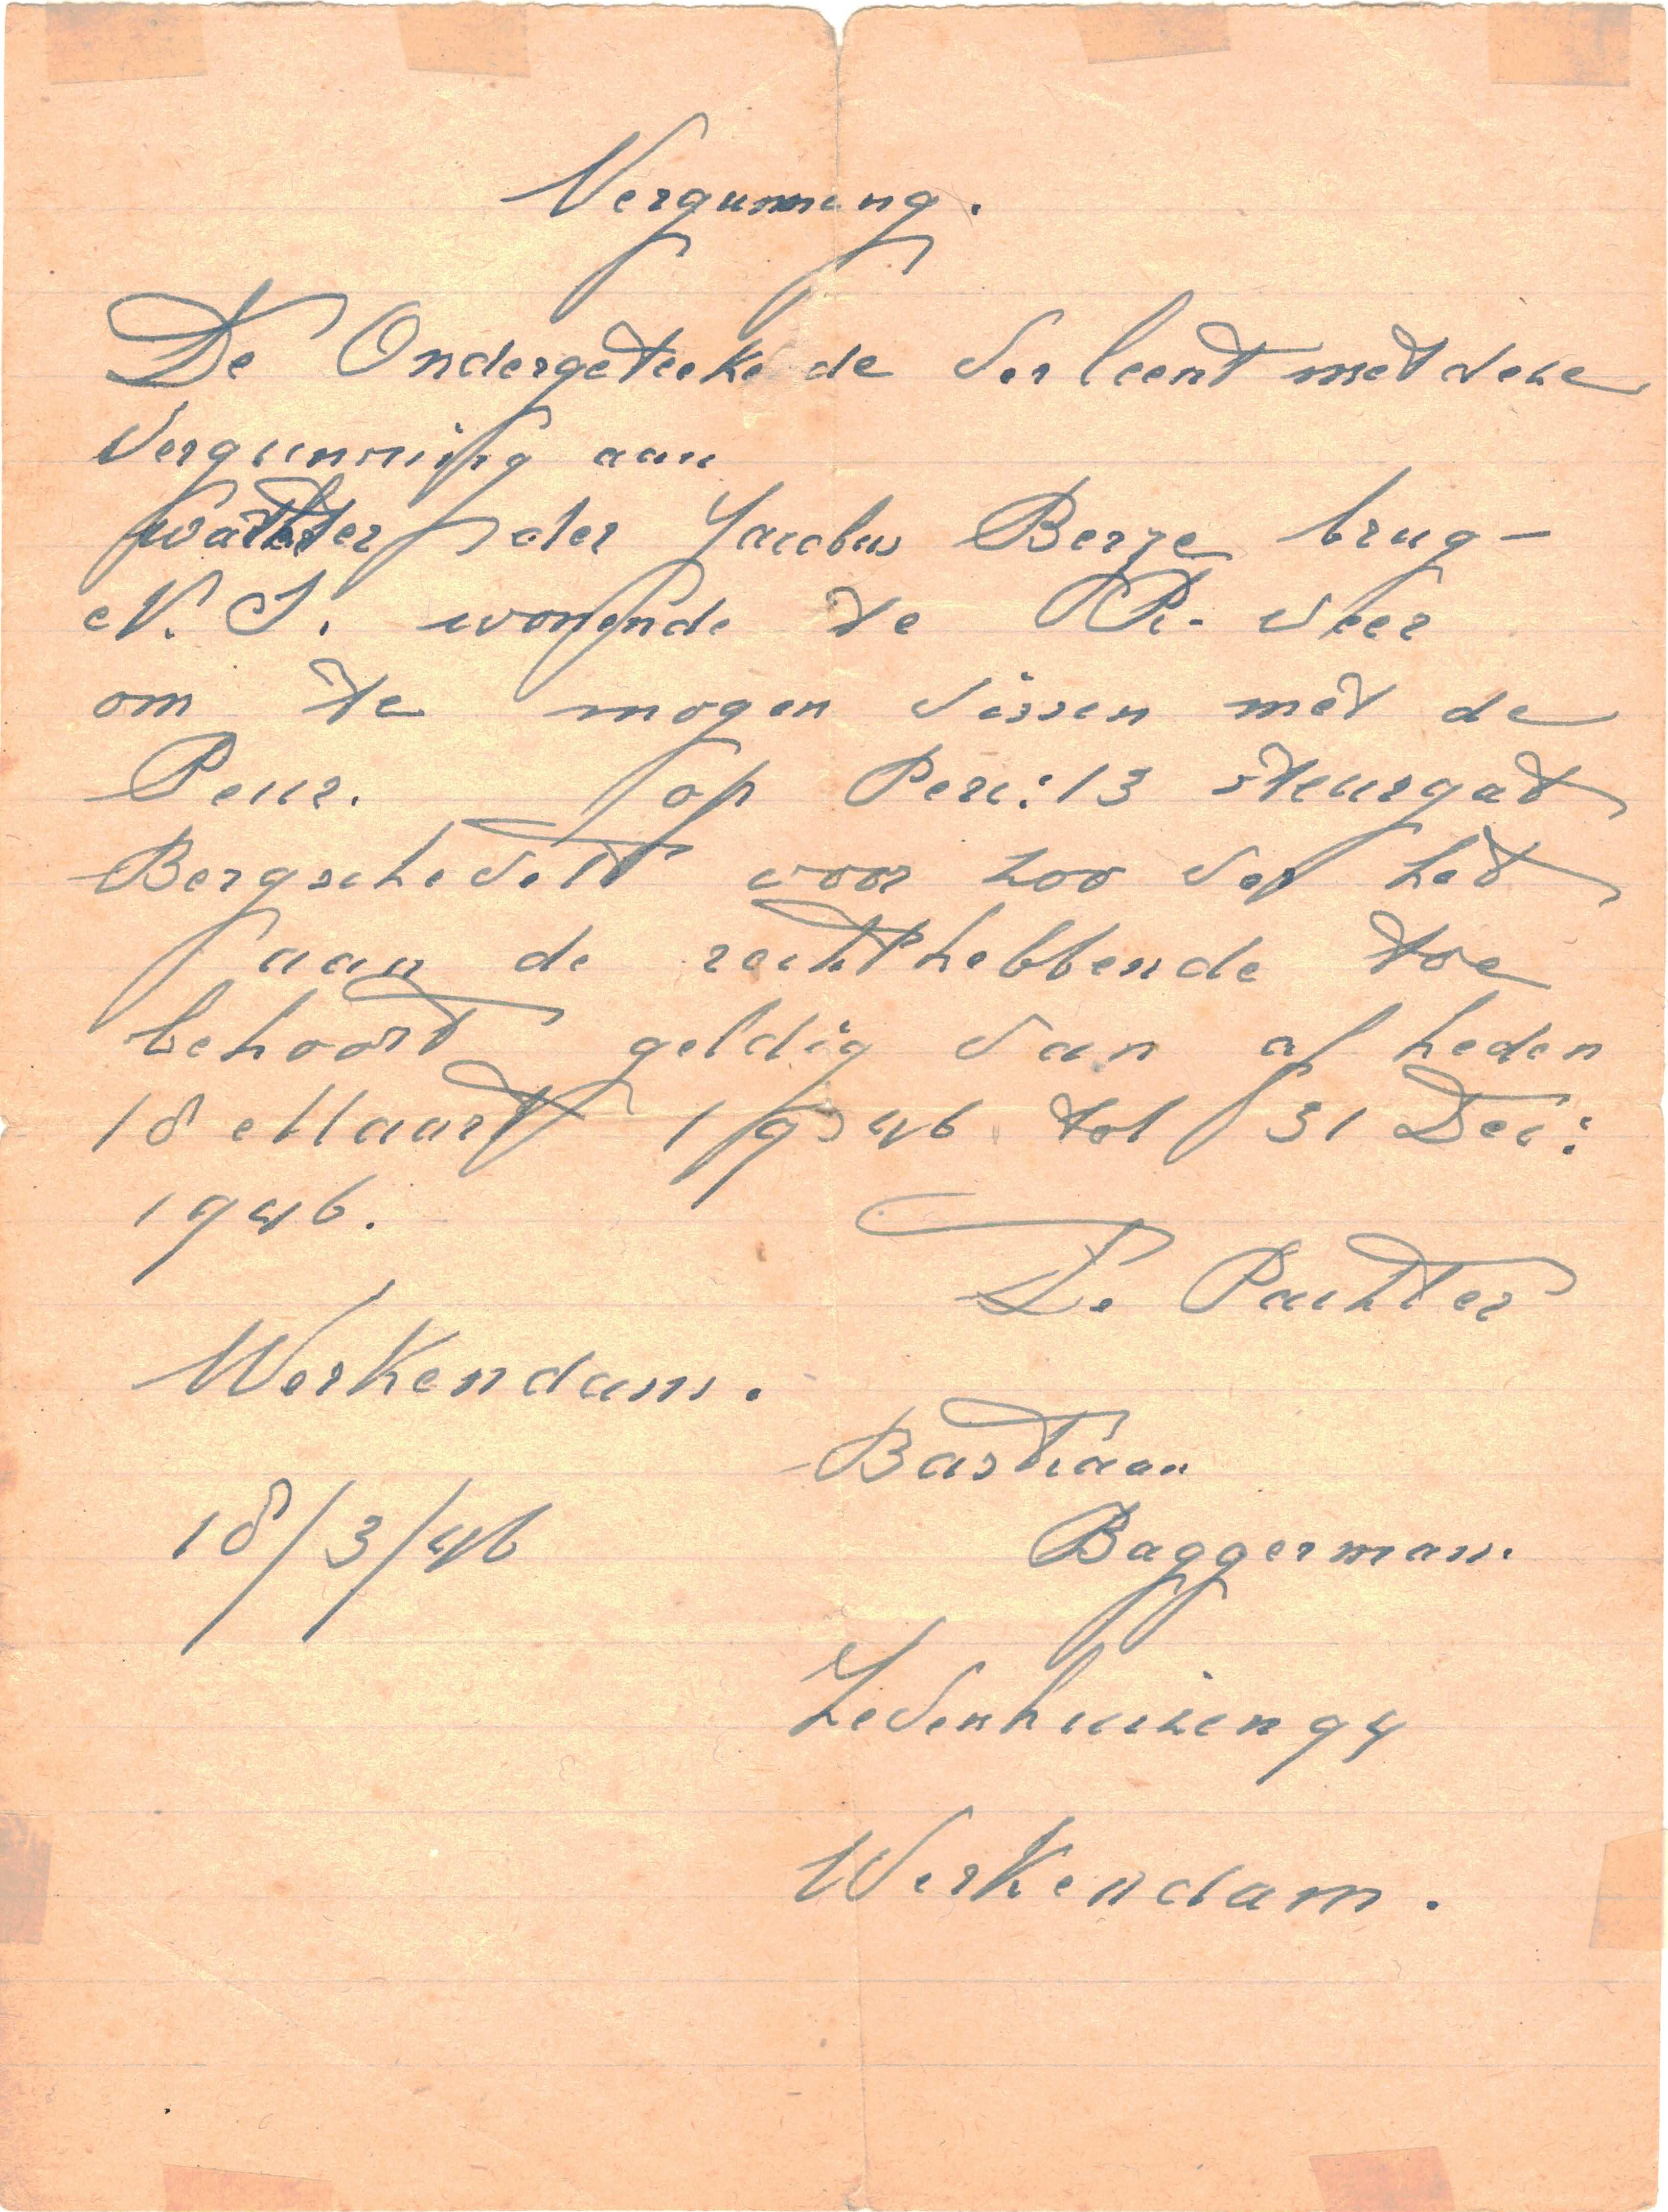 Vergunning.
De Ondergeteekede verleent met deze
vergunning aan
wachter der Jacobus Berze brug-
N. S. wonende te R. veer
om te mogen vissen met de
Peur. op Perc: 13 steurgat
Bergsche veld voor zoo ver het
aan de rechthebbende toe
behoort geldig van af heden
18 Maart 1946 tot 31 Dec:
1946.
De Pachter
Werkendam.
Bastiaan
18/3/46
Baggerman.
Zevenhuizen 94
Werkendam.